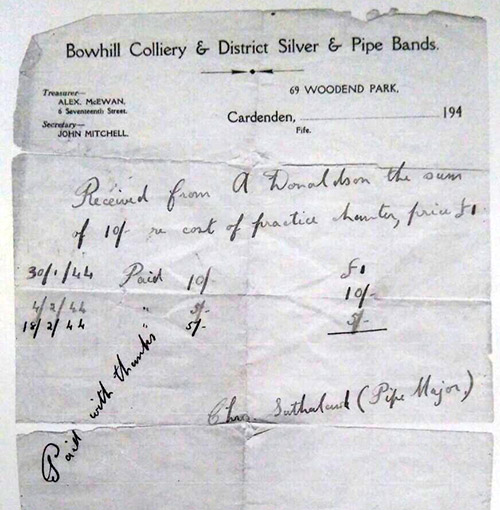 Bowhill Colliery & District Silver & Pipe Bands.
Treasurer—
ALEX. McEWAN,
6 Seventeenth Street.
Secretary—
JOHN MITCHELL.
69 WOODEND PARK,
Cardenden, 194
Fife.
Received from A Donaldson the sum
of 10/- re cost of practice chanter, price £1
30/1/44 Paid 10/- £1
4/2/44 " 5/- 10/-
18/2/44 " 5/- 5/-
Paid with thanks
Chas. Sutherland (Pipe Major)